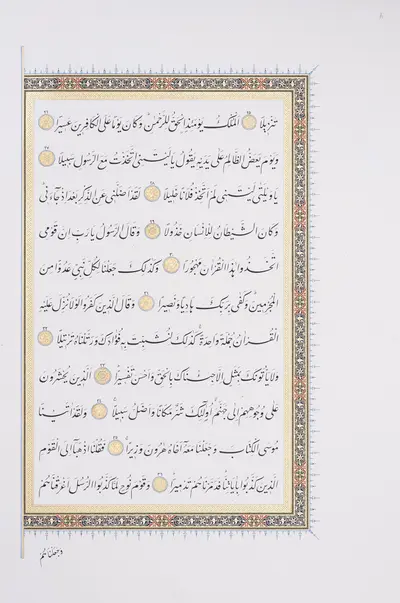 تنزيلا الملك يومئذ الحق للرحمن وكان يوما على الكافرين عسيرا
ويوم يعض الظالم على يديه يقول ياليتنى اتخذت مع الرسول سبيلا
ياويلتى ليتنى لم اتخذ فلانا خليلا لقد اضلنى عن الذكر بعد اذ جاءنى
وكان الشيطان للانسان خذولا وقال الرسول يارب ان قومى
اتخذوا هذا القرآن مهجورا وكذلك جعلنا لكل نبى عدوا من
المجرمين وكفى بربك هاديا ونصيرا وقال الذين كفروا لولا نزل عليه
القرآن جملة واحدة كذلك لنثبت به فؤادك ورتلناه ترتيلا
ولا يأتونك بمثل الا جئناك بالحق واحسن تفسيرا الذين يحشرون
على وجوههم الى جهنم اولئك شر مكانا واضل سبيلا ولقد آتينا
موسى الكتاب وجعلنا معه اخاه هرون وزيرا فقلنا اذهبا الى القوم
الذين كذبوا باياتنا فدمرناهم تدميرا وقوم نوح لما كذبوا الرسل اغرقناهم
وجعلناهم